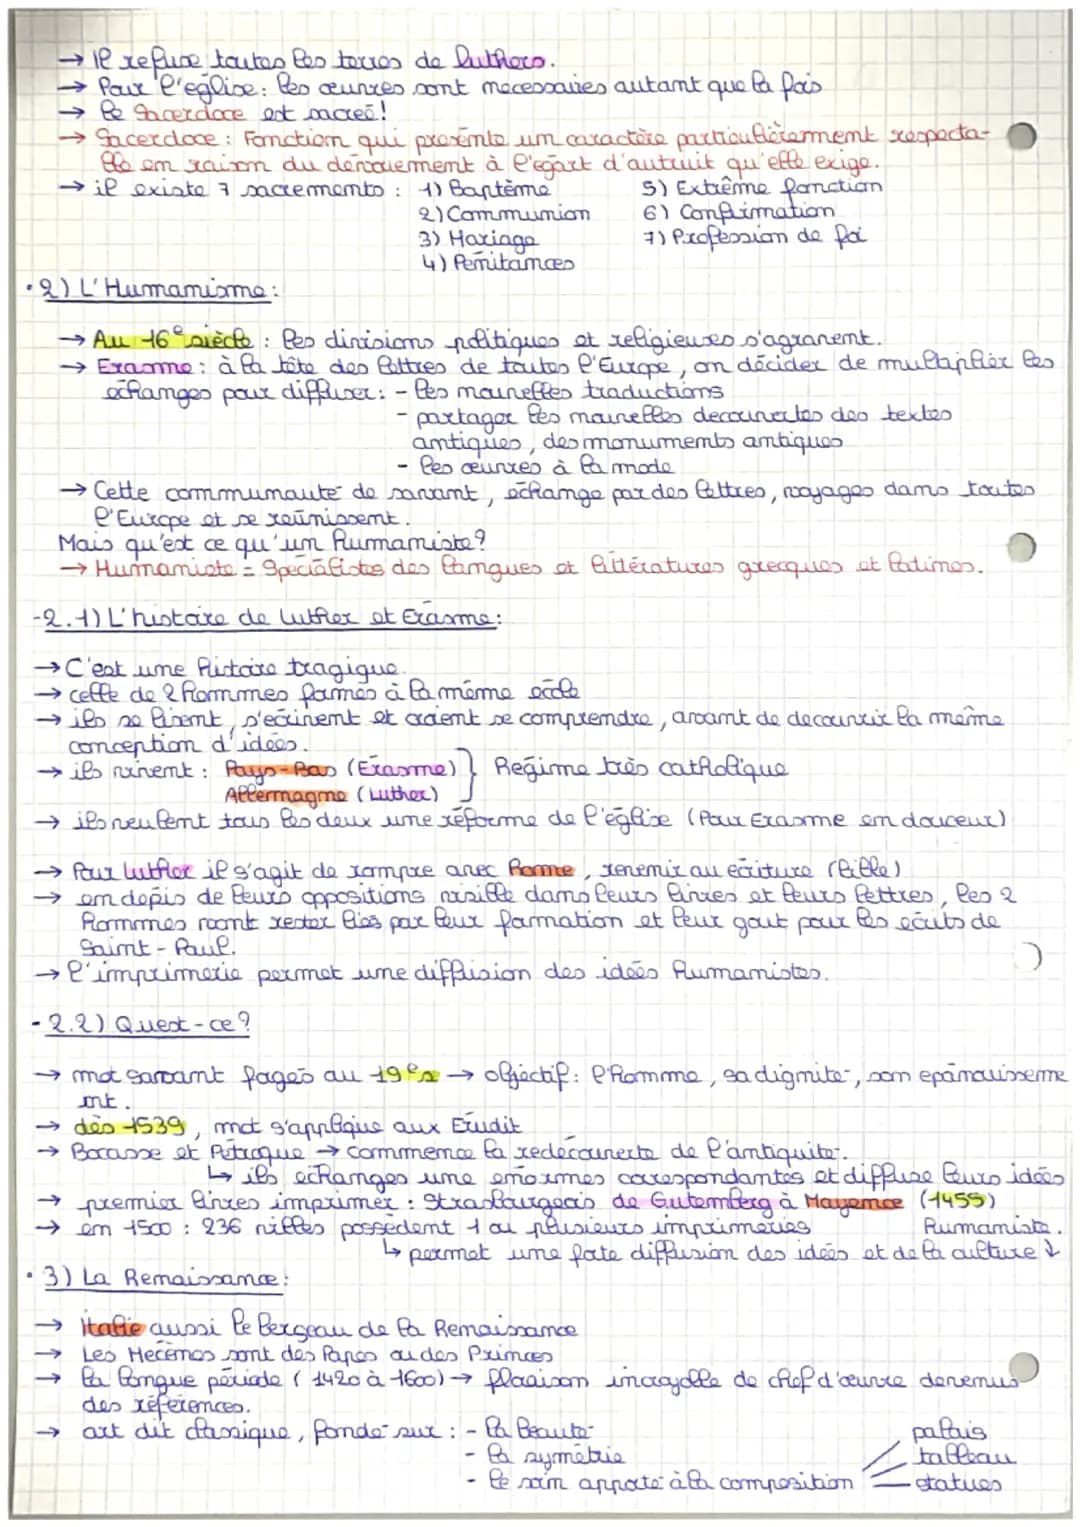 → Il refuse toutes les terres de Luthers.
→ Pour l'église : les œuvres sont necessaires autant que la fois
→ Le Sacerdoce est sacreé !
→ Sacerdoce : Fonction qui présente un caractère particulièrement respecta-
ble en raison du dénouement à l'egart d'autruit qu'elle exige.
→ il existe 7 sacrements : 1) Baptême 5) Extrême fonction
2) Communion 6) Confirmation
3) Mariage 7) Profession de foi
4) Penitances
• 2) L'Humanisme :
→ Au 16e siècle : les divisions politiques et religieuses s'agravent.
→ Erasme : à la tête des lettres de toutes l'Europe, on décider de multiplier les
échanges pour diffuser : - les nouvelles traductions
- partager les nouvelles decouvertes des textes
antiques, des monuments antiques
- les œuvres à la mode
→ Cette communauté de savant, échange par des lettres, voyages dans toutes
l'Europe et se reúnissent.
Mais qu'est ce qu'un humaniste ?
→ Humaniste = Spécialistes des langues et littératures grecques et latines.
- 2.1) L'histoire de Luther et Erasme :
→ C'est une histoire tragique.
→ celle de 2 hommes formés à la même école
→ ils se lisent, s'écrivent et croient se comprendre, avant de decouvrir la même
conception d'idées.
→ ils vivent : Pays-Bas (Erasme) } Regime très catholique
Allemagne (Luther)
→ ils veulent tous les deux une réforme de l'église (Pour Erasme en douceur)
→ Pour Luther il s'agit de rompre avec Rome, revenir au écriture (bible)
→ en depis de leurs oppositions visible dans leurs livres et leurs lettres, les 2
hommes vont rester liés par leur formation et leur gout pour les écrits de
Saint-Paul.
→ l'imprimerie permet une diffusion des idées humanistes.
- 2.2) Quest-ce ?
→ mot savant fagés au 19e s → objectif : l'homme, sa dignité, son epanouisseme
nt.
→ dès 1539, mot s'applique aux Erudit
→ Bocasse et Pétraque → commence la redécouverte de l'antiquité.
↳ ils échanges une enormes correspondantes et diffuse leurs idées
→ premier livres imprimer : Strasbourgeois de Gutemberg à Mayence (1455)
→ en 1500 : 236 villes possedent 1 ou plusieurs imprimeries humaniste.
↳ permet une forte diffusion des idées et de la culture ↓
• 3) La Renaissance :
→ Italie aussi le bergeau de la Renaissance
→ Les Mecenes sont des Papes ou des Princes
→ la longue période (1420 à 1600) → floraison incroyable de chef d'œuvre devenus
des références.
→ art dit classique, fondé sur : - la beauté palais
- la symétrie tableau
- le soin apporté à la composition statues